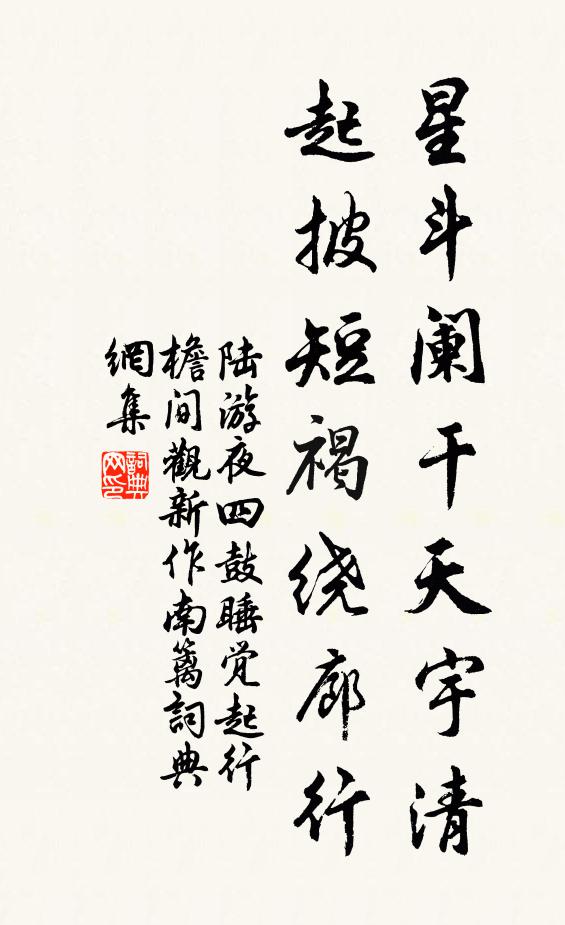 星斗阑干天宇清
起披短褐绕廊行
陆游夜四鼓睡觉起行
檐间觀新作南篱詞典
網集
詞典网印